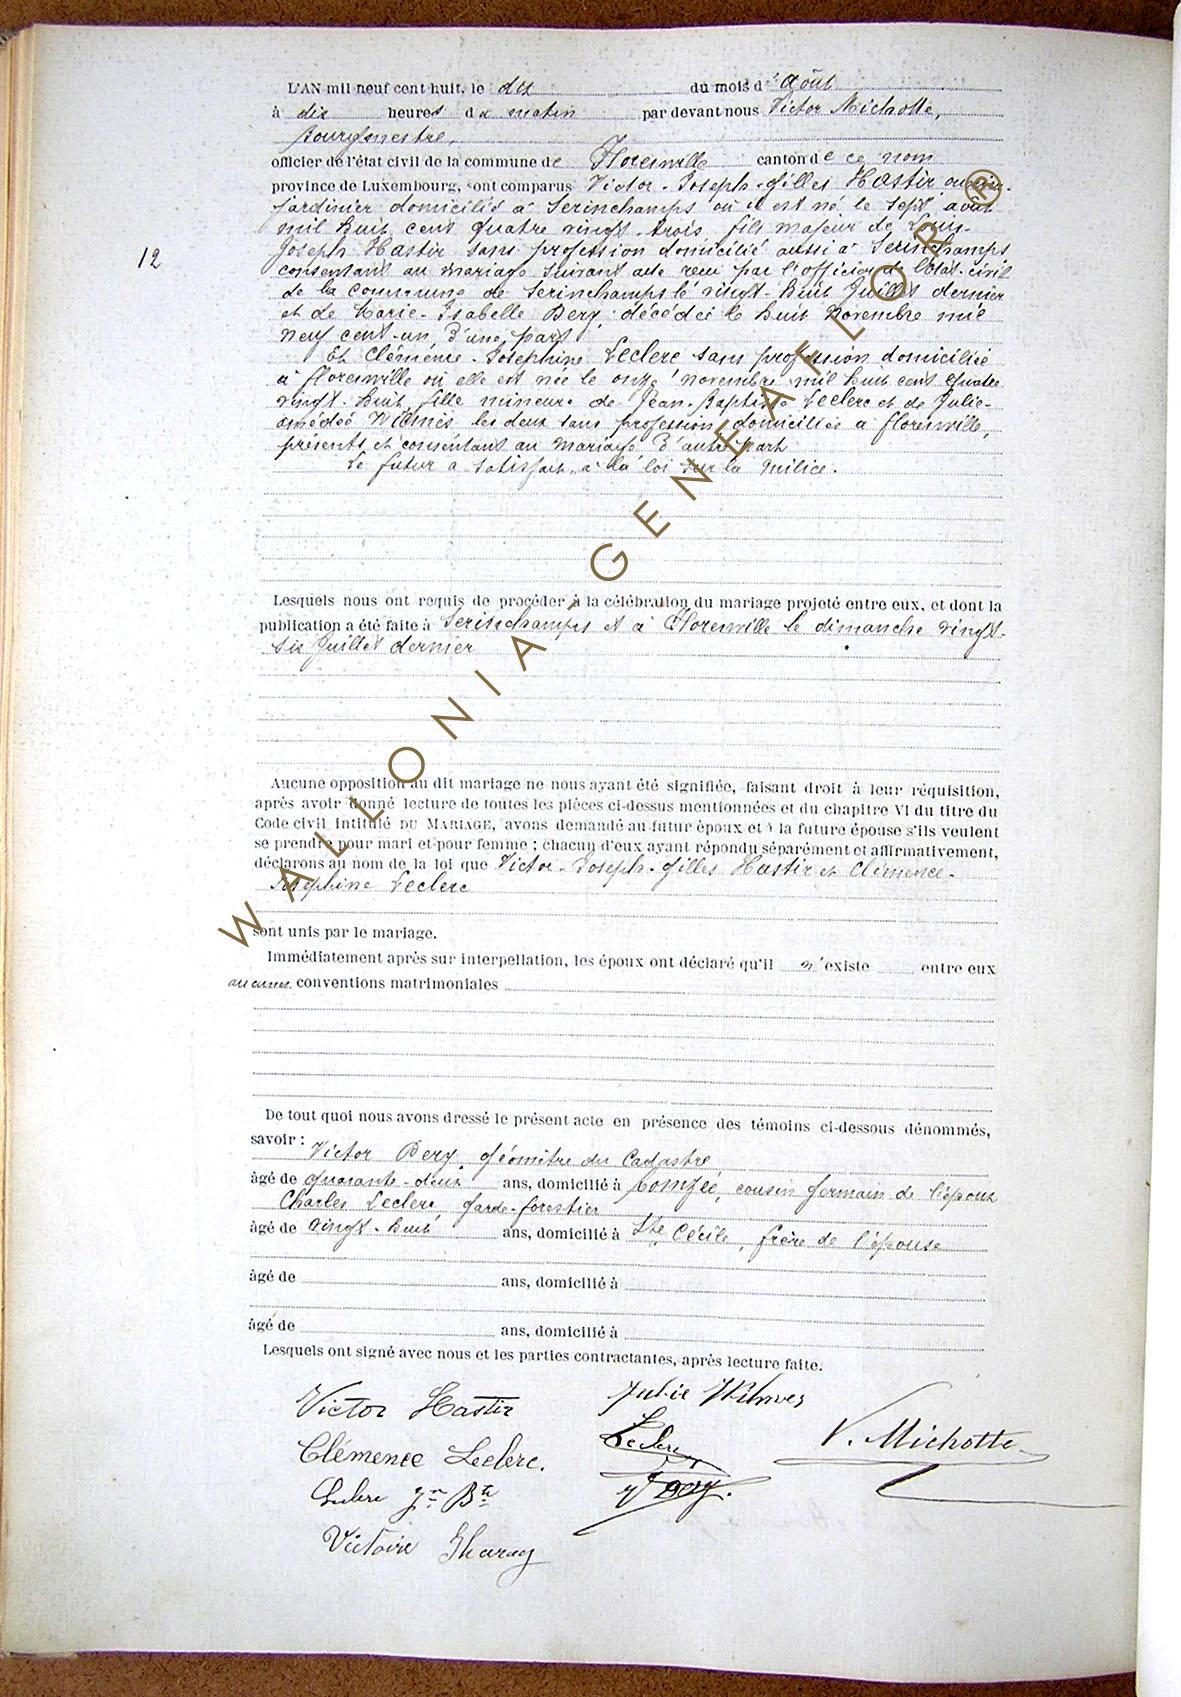 L'AN mil neuf cent huit, le dix du mois d'Août
à dix heures du matin par devant nous Victor Michotte,
Bourgmestre,
officier de l'état civil de la commune de Florenville canton de ce nom
province de Luxembourg, sont comparus Victor-Joseph-Gilles Hastir
jardinier domicilié à Serinchamps où il est né le sept août
mil huit cent quatre vingt-trois, fils majeur de Louis-
12
Joseph Hastir sans profession domicilié aussi à Serinchamps
consentant au mariage suivant acte reçu par l'officier de l'état-civil
de la commune de Serinchamps le vingt-huit Juillet dernier
et de Marie-Isabelle Dery, décédée le huit Novembre mil
neuf cent-un, d'une part
Et Clémence-Joséphine Leclerc sans profession domiciliée
à Florenville où elle est née le onze novembre mil huit cent quatre
vingt-huit, fille mineure de Jean-Baptiste Leclerc et de Julie-
amédée Wilmès les deux sans profession domiciliés à Florenville,
présents et consentant au mariage d'autre part
Le futur a satisfait à la loi sur la milice.
Lesquels nous ont requis de procéder à la célébration du mariage projeté entre eux, et dont la
publication a été faite à Serinchamps et à Florenville le dimanche vingt-
six Juillet dernier
Aucune opposition au dit mariage ne nous ayant été signifiée, faisant droit à leur réquisition,
après avoir donné lecture de toutes les pièces ci-dessus mentionnées et du chapitre VI du titre du
Code civil intitulé DU MARIAGE, avons demandé au futur époux et à la future épouse s'ils veulent
se prendre pour mari et pour femme ; chacun d'eux ayant répondu séparément et affirmativement,
déclarons au nom de la loi que Victor-Joseph-Gilles Hastir et Clémence-
Joséphine Leclerc
sont unis par le mariage.
Immédiatement après sur interpellation, les époux ont déclaré qu'il n'existe entre eux
aucunes conventions matrimoniales
De tout quoi nous avons dressé le présent acte en présence des témoins ci-dessous dénommés,
savoir : Victor Dery, géomètre du Cadastre
âgé de quarante-deux ans, domicilié à Comzée, cousin germain de l'époux
Charles Leclerc garde-forestier
âgé de vingt-huit ans, domicilié à Ste Cécile, frère de l'épouse
âgé de ans, domicilié à
âgé de ans, domicilié à
Lesquels ont signé avec nous et les parties contractantes, après lecture faite.
Victor Hastir
Julie Wilmes
Clémence Leclerc.
Leclerc
V. Michotte
Leclerc Jn Bte
V Dery.
Victoire
WALLONIA-GENEAFLOR®